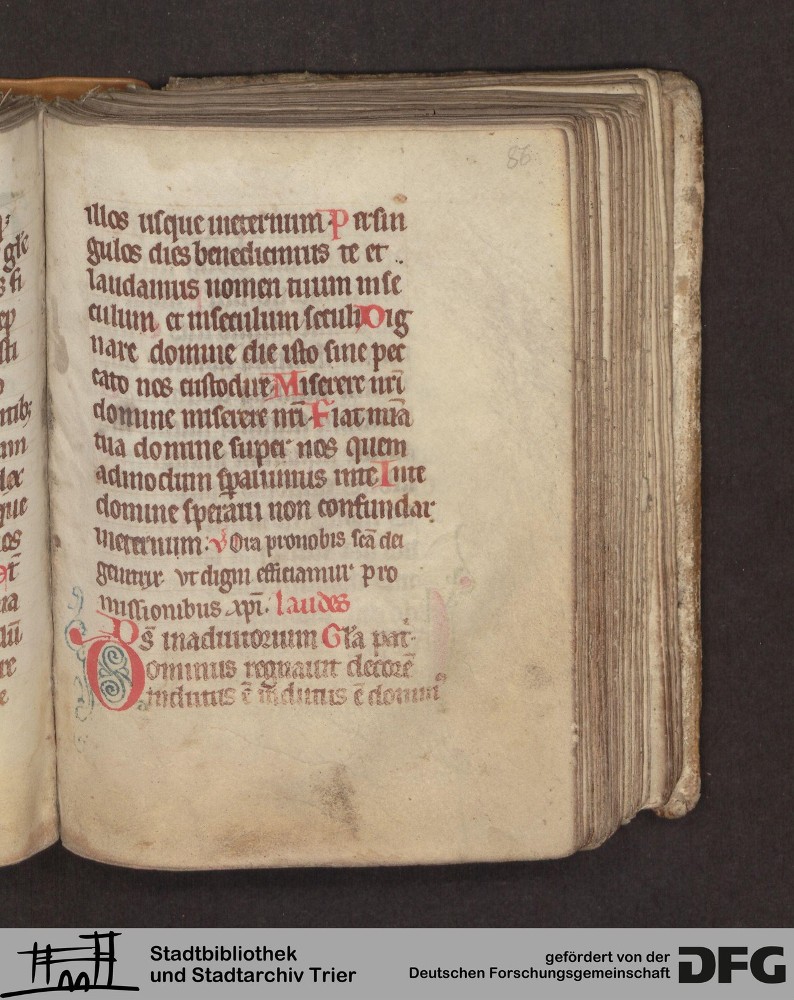 86
illos usque ineternum Persin
gulos dies benedicimus te et
laudamus nomen tuum inse
culum et inseculum seculi Dig
nare domine die isto sine pec
cato nos custodire Miserere nri
domine miserere nri Fiat mia
tua domine super nos quem
admodum sperauimus inte Inte
domine speraui non confundar
ineternum. v Ora pronobis sca dei
genitrix. vt digni efficiamur pro
missionibus xpi. laudes
Ds inadiutorium Gla pat
Dominus regnauit decore
indutus e indutus e domin9
Stadtbibliothek
und Stadtarchiv Trier
gefördert von der
Deutschen Forschungsgemeinschaft
DFG